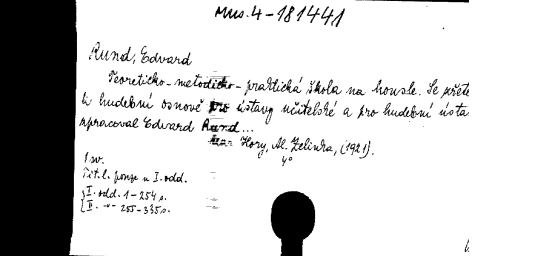 Mus. 4 - 181441
Rund, Edvard
Teoreticko-metodicko-praktická škola na housle. Se
k hudební osnově pro ústavy učitelské a pro hudební ústa
zpracoval Edvard Rund...
Hory, Al. Zelinka, (1921).
4°
1 sv.
Tit. l. pouze u I. odd.
I. odd. 1-254 s.
II. -"- 255-335 s.